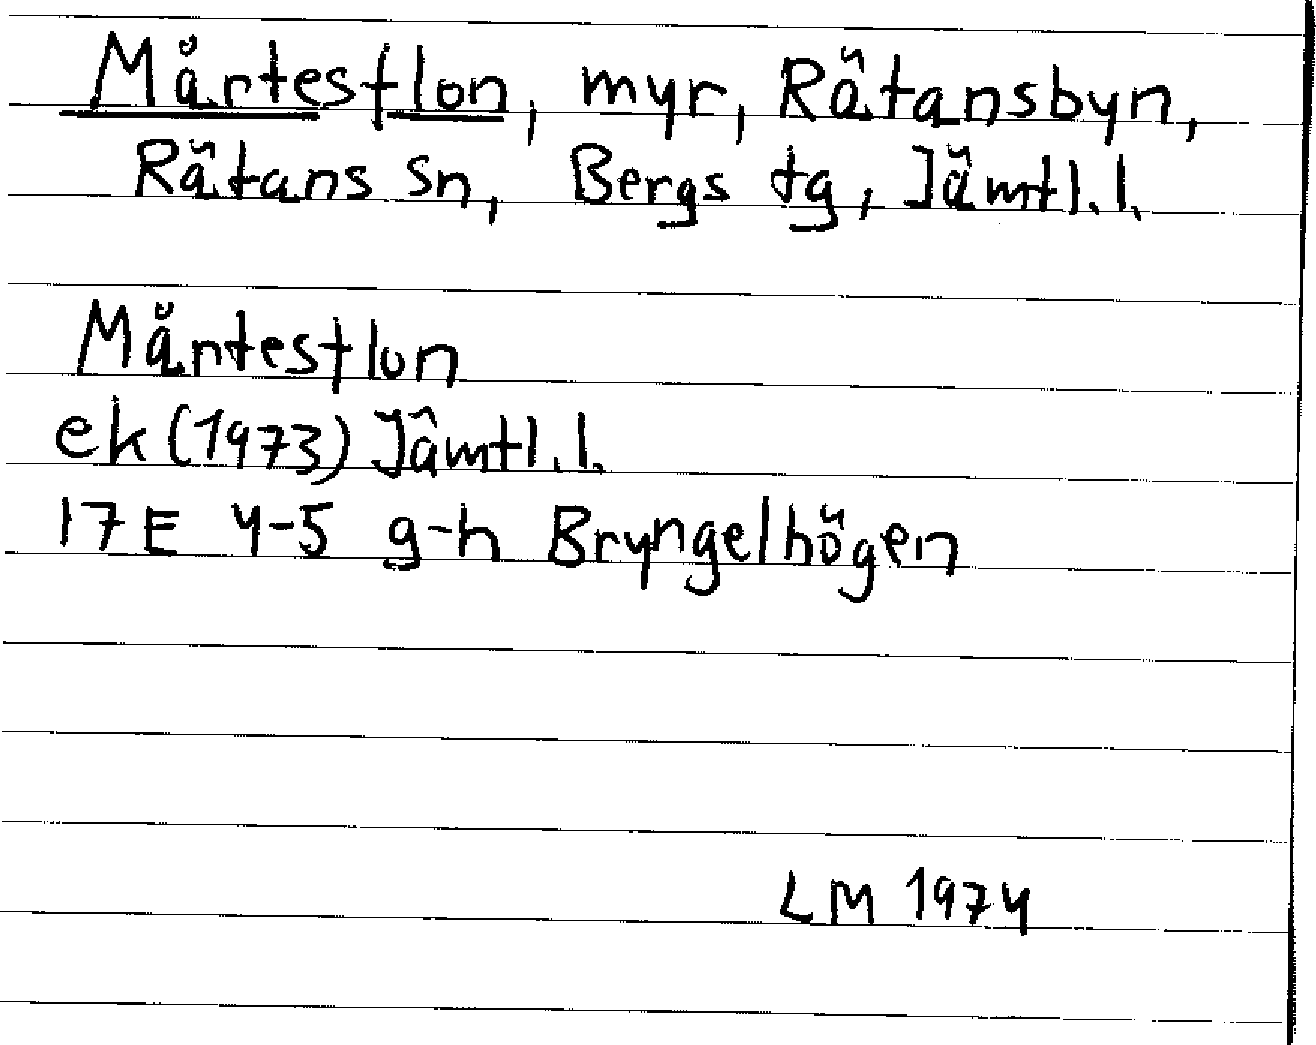 Mårtesflon, myr, Rätansbyn,
Rätans sn, Bergs tg, Jämtl.l.
Mårtesflon
ek (1973) Jämtl.l.
17E 4-5 g-h Bryngelhögen
LM 1974